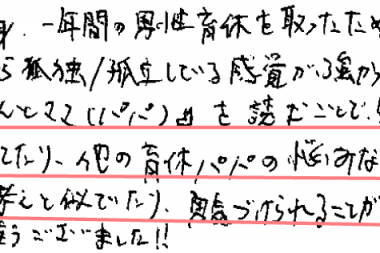 、一年間の男性育休を取ったため
孤独/孤立している感覚が強か
とママ(パパ)」を読むことで、
てたり、他の育休パパの悩みな
考えと似てたり、勇気づけられることが
うございました!!